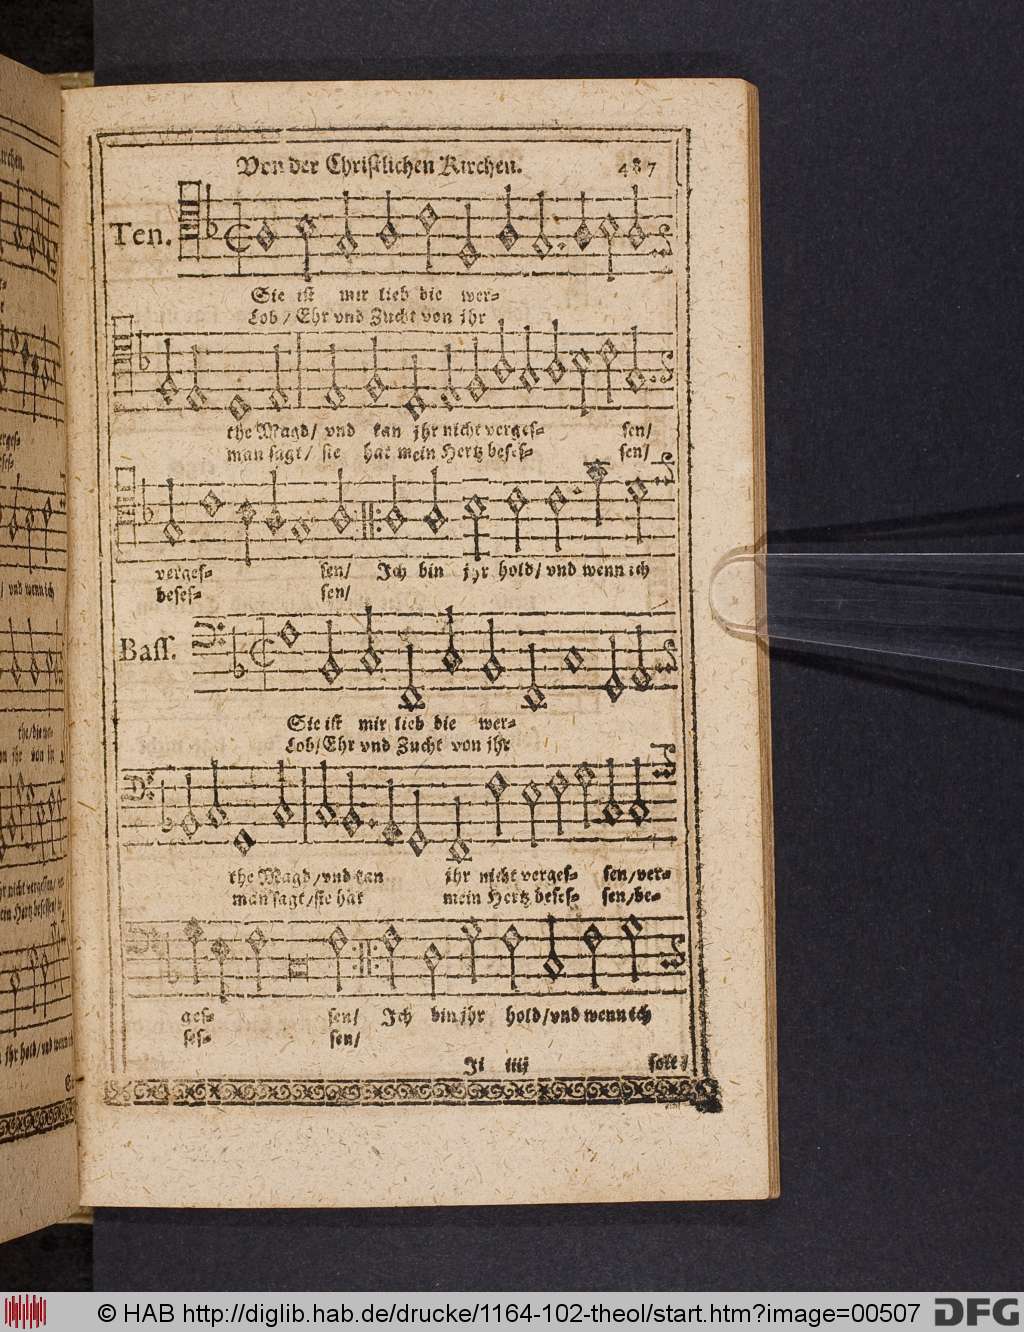 Von der Christlichen Kirchen. 487
Ten.
Sie ist mir lieb die wer-
Lob / Ehr vnd Zucht von jhr
the Magd / vnd kan jhr nicht verges- sen /
man sagt / sie hat mein Hertz beses- sen /
verges- sen / Ich bin jhr hold / vnd wenn ich
beses- sen /
Bass.
Sie ist mir lieb die wer-
Lob / Ehr vnd Zucht von jhr
the Magd / vnd kan jhr nicht verges- sen / ver-
man sagt / sie hat mein Hertz beses- sen / be-
ges- sen / Ich bin jhr hold / vnd wenn ich
ses- sen /
Ii iiij solt /
© HAB http://diglib.hab.de/drucke/1164-102-theol/start.htm?image=00507 DFG